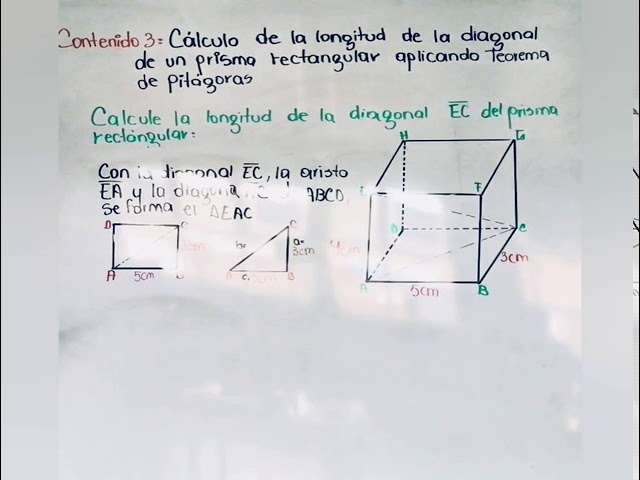 Contenido 3: Cálculo de la longitud de la diagonal
de un prisma rectangular aplicando Teorema
de Pitágoras
Calcule la longitud de la diagonal EC del prisma
rectángular:
Con la diagonal EC, la aristo
EA y la diagona ABCD,
se forma el ΔEAC
H G
E F
D C
4cm 3cm
A 5cm B
D C
3cm
A 5cm
C
b= a=
3cm
c= B